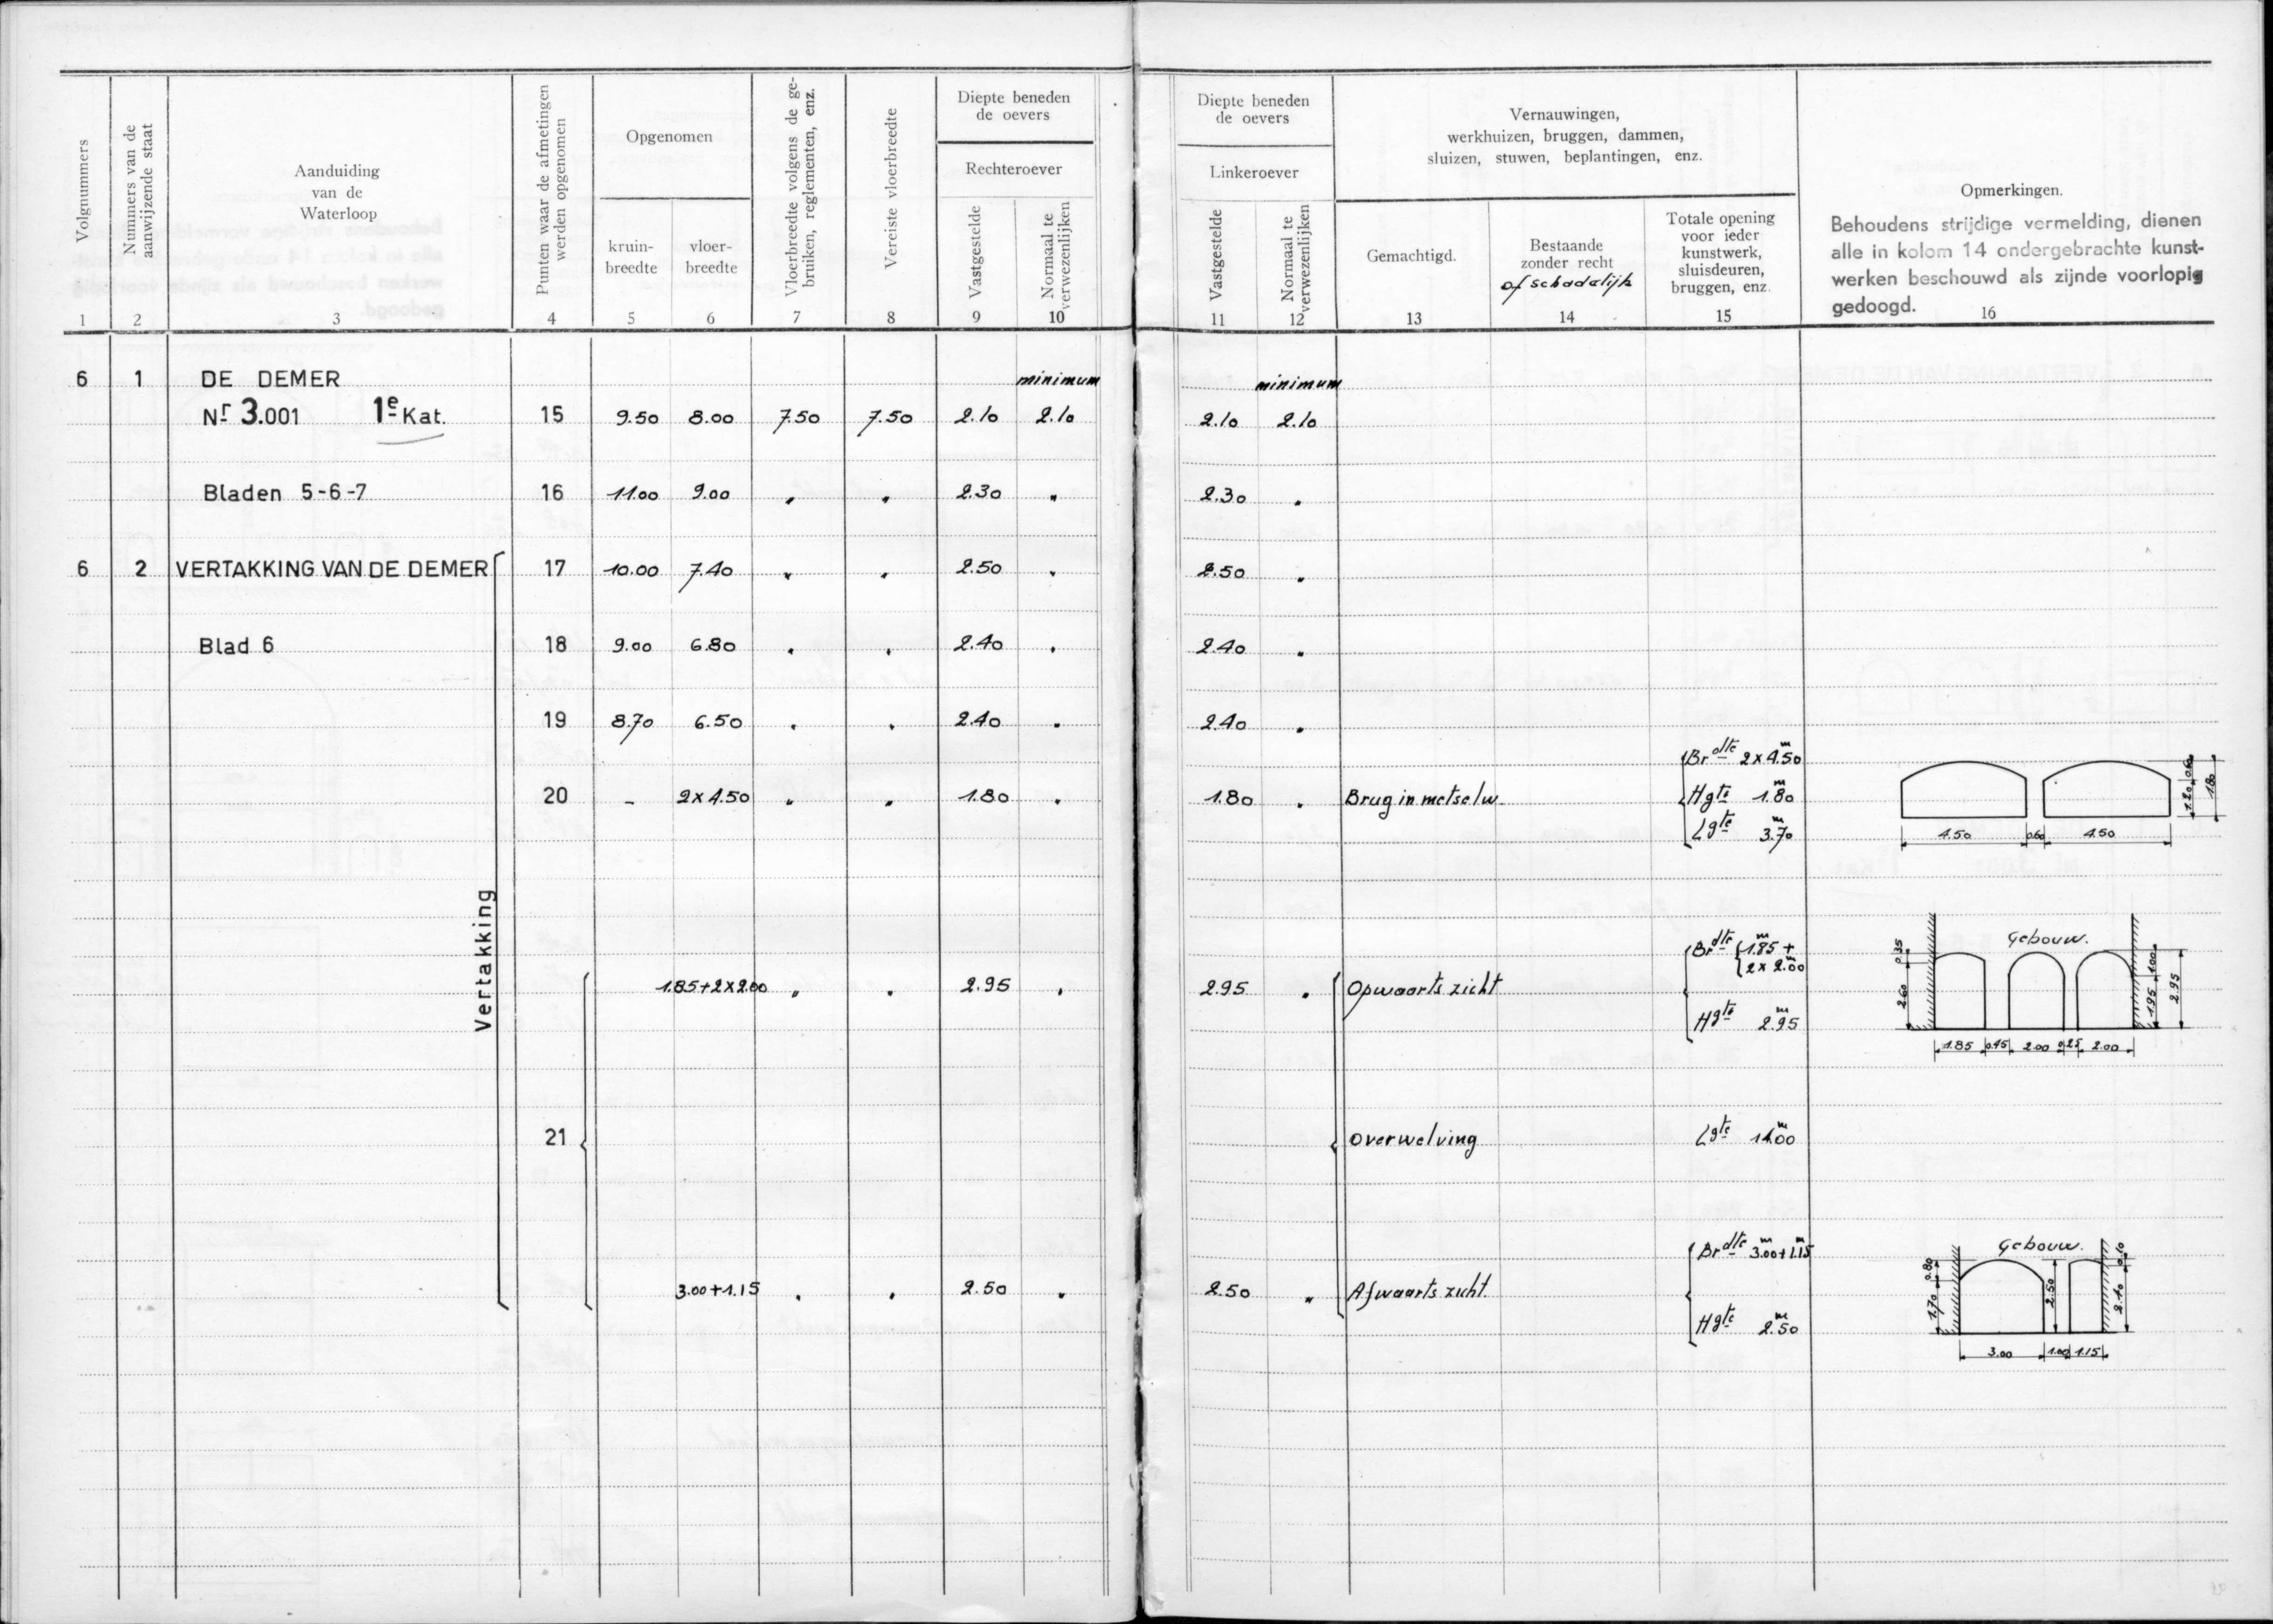 Volgnummers
Nummers van de
aanwijzende staat
Aanduiding
van de
Waterloop
Punten waar de afmetingen
werden opgenomen
Opgenomen
kruin-
breedte
vloer-
breedte
Vloerbreedte volgens de ge-
bruiken, reglementen, enz.
Vereiste vloerbreedte
Diepte beneden
de oevers
Rechteroever
Vastgestelde
Normaal te
verwezenlijken
1 2 3 4 5 6 7 8 9 10
Diepte beneden
de oevers
Linkeroever
Vastgestelde
Normaal te
verwezenlijken
Vernauwingen,
werkhuizen, bruggen, dammen,
sluizen, stuwen, beplantingen, enz.
Gemachtigd.
Bestaande
zonder recht
of schadelijk
Totale opening
voor ieder
kunstwerk,
sluisdeuren,
bruggen, enz.
Opmerkingen.
Behoudens strijdige vermelding, dienen
alle in kolom 14 ondergebrachte kunst-
werken beschouwd als zijnde voorlopig
gedoogd.
11 12 13 14 15 16
6 1 DE DEMER minimum minimum
Nr 3.001 1e Kat. 15 9.50 8.00 7.50 7.50 2.10 2.10 2.10 2.10
Bladen 5-6-7 16 11.00 9.00 " " 2.30 " 2.30 "
6 2 VERTAKKING VAN DE DEMER 17 10.00 7.40 " " 2.50 " 2.50 "
Blad 6 18 9.00 6.80 " " 2.40 " 2.40 "
19 8.70 6.50 " " 2.40 " 2.40 "
20 - 2x4.50 " " 1.80 " 1.80 " Brug in metselw.
Brdte 2x4.50m
Hgte 1.80m
Lgte 3.70m
4.50 0.60 4.50
1.20 0.60 1.80
Vertakking
1.85+2x2.00 " " 2.95 " 2.95 " Opwaarts zicht
Brdte 1.85m +
2x2.00m
Hgte 2.95m
Gebouw.
0.35
2.60
1.00
1.95
2.95
1.85 0.45 2.00 0.25 2.00
21 Overwelving Lgte 14.00m
3.00+1.15 " " 2.50 " 2.50 " Afwaarts zicht.
Brdte 3.00m+1.15m
Hgte 2.50m
Gebouw.
0.80
1.70
2.50
0.10
2.40
3.00 1.00 1.15